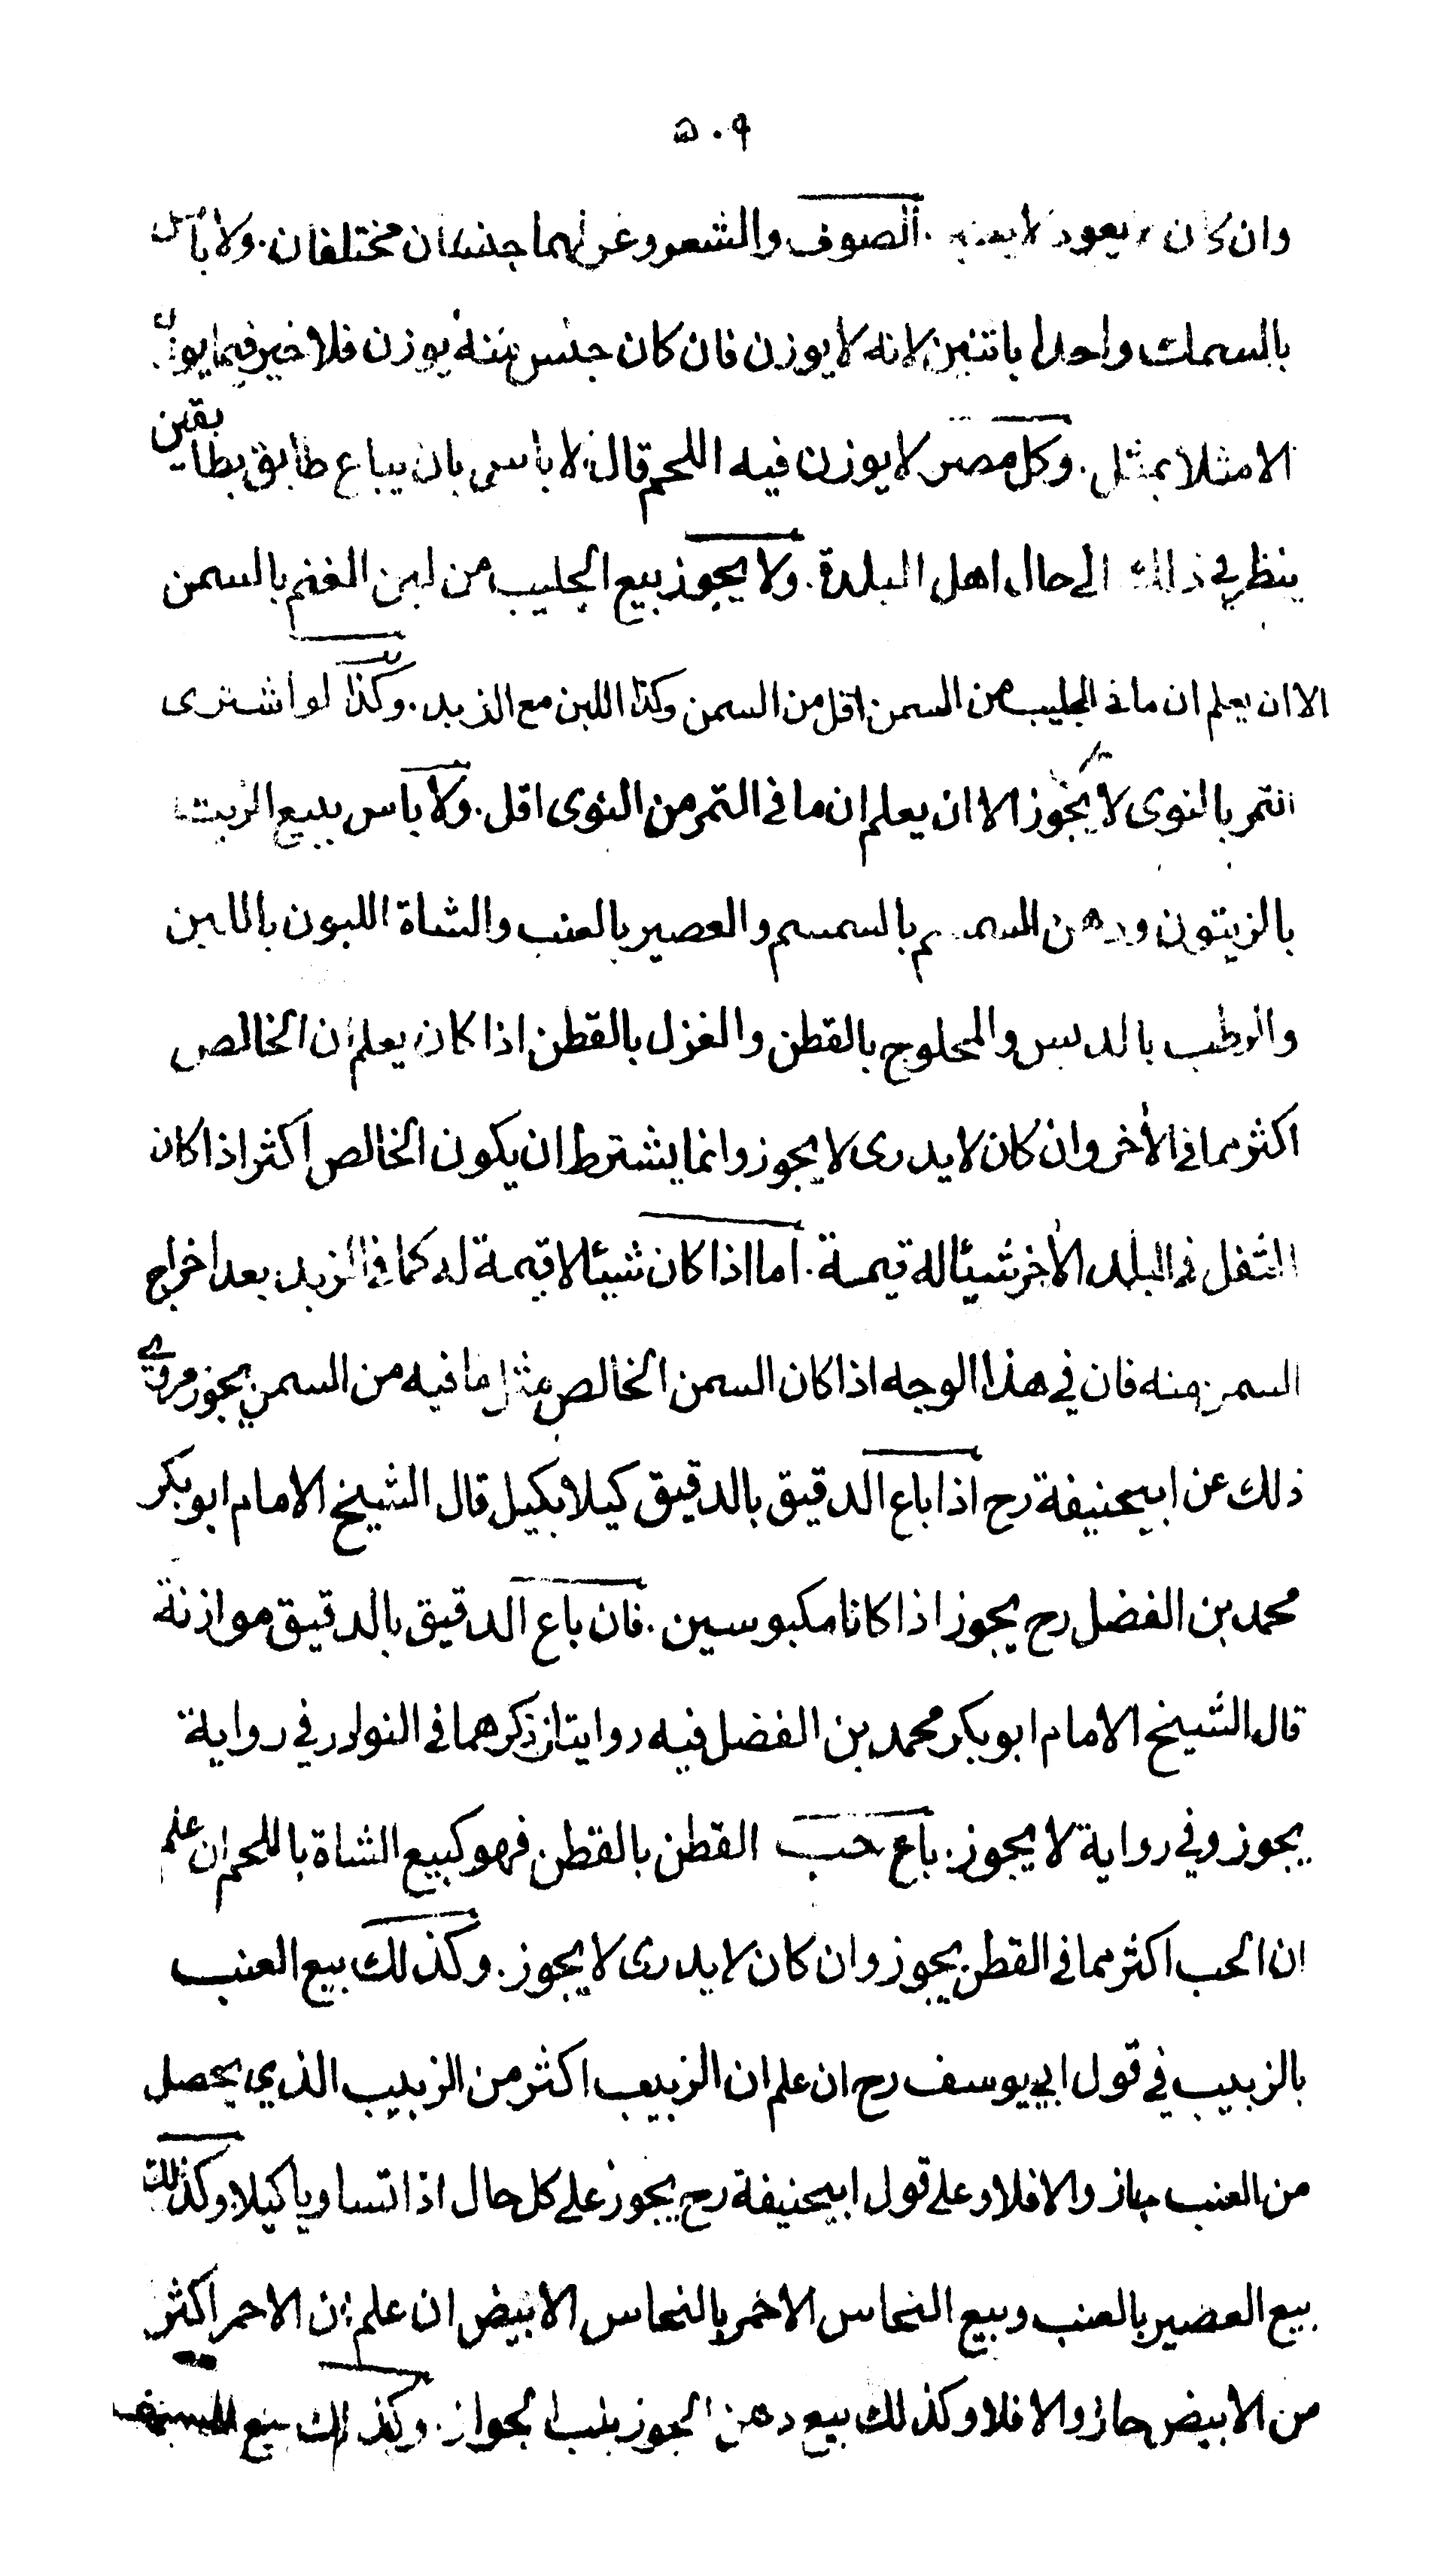 ٥٠٩
وان كان لا يعود لا يعتبر . الصوف والشعر وغزلهما جنسان مختلفان . ولا باس
بالسمك واحدا باثنين لانه لا يوزن فان كان جنس منه يوزن فلا خير فيما يوزن
الا مثلا بمثل . وكل مصر لا يوزن فيه اللحم قال لا باس بان يباع طابق بطابقين
ينظر في ذلك الى حال اهل البلدة . ولا يجوز بيع الحليب من لبن الغنم بالسمن
الا ان يعلم ان ما في الحليب من السمن اقل من السمن وكذا اللبن مع الزبد . وكذا لو اشترى
التمر بالنوى لا يجوز الا ان يعلم ان ما في التمر من النوى اقل . ولا باس ببيع الزيت
بالزيتون ودهن السمسم بالسمسم والعصير بالعنب والشاة اللبون باللبن
والرطب بالدبس والمحلوج بالقطن والغزل بالقطن اذا كان يعلم ان الخالص
اكثر مما في الأخر وان كان لا يدرى لا يجوز وانما يشترط ان يكون الخالص اكثر اذا كان
الثفل في البلد الأخر شيئا له قيمة . اما اذا كان شيئا لا قيمة له كما في الزبد بعد اخراج
السمن منه فان في هذا الوجه اذا كان السمن الخالص مثل ما فيه من السمن يجوز مروي
ذلك عن ابيحنيفة رح اذا باع الدقيق بالدقيق كيلا بكيل قال الشيخ الامام ابو بكر
محمد بن الفضل رح يجوز اذا كانا مكبوسين . فان باع الدقيق بالدقيق موازنة
قال الشيخ الامام ابو بكر محمد بن الفضل فيه روايتان ذكرهما في النوادر في رواية
يجوز وفي رواية لا يجوز . باع حب القطن بالقطن فهو كبيع الشاة باللحم ان علم
ان الحب اكثر مما في القطن يجوز وان كان لا يدرى لا يجوز . وكذلك بيع العنب
بالزبيب في قول ابي يوسف رح ان علم ان الزبيب اكثر من الزبيب الذي يحصل
من العنب جاز والا فلا وعلى قول ابيحنيفة رح يجوز على كل حال اذا تساويا كيلا وكذلك
بيع العصير بالعنب وبيع النحاس الاحمر بالنحاس الابيض ان علم ان الاحمر اكثر
من الابيض جاز والا فلا وكذلك بيع دهن الجوز بلب الجواز . وكذلك بيع